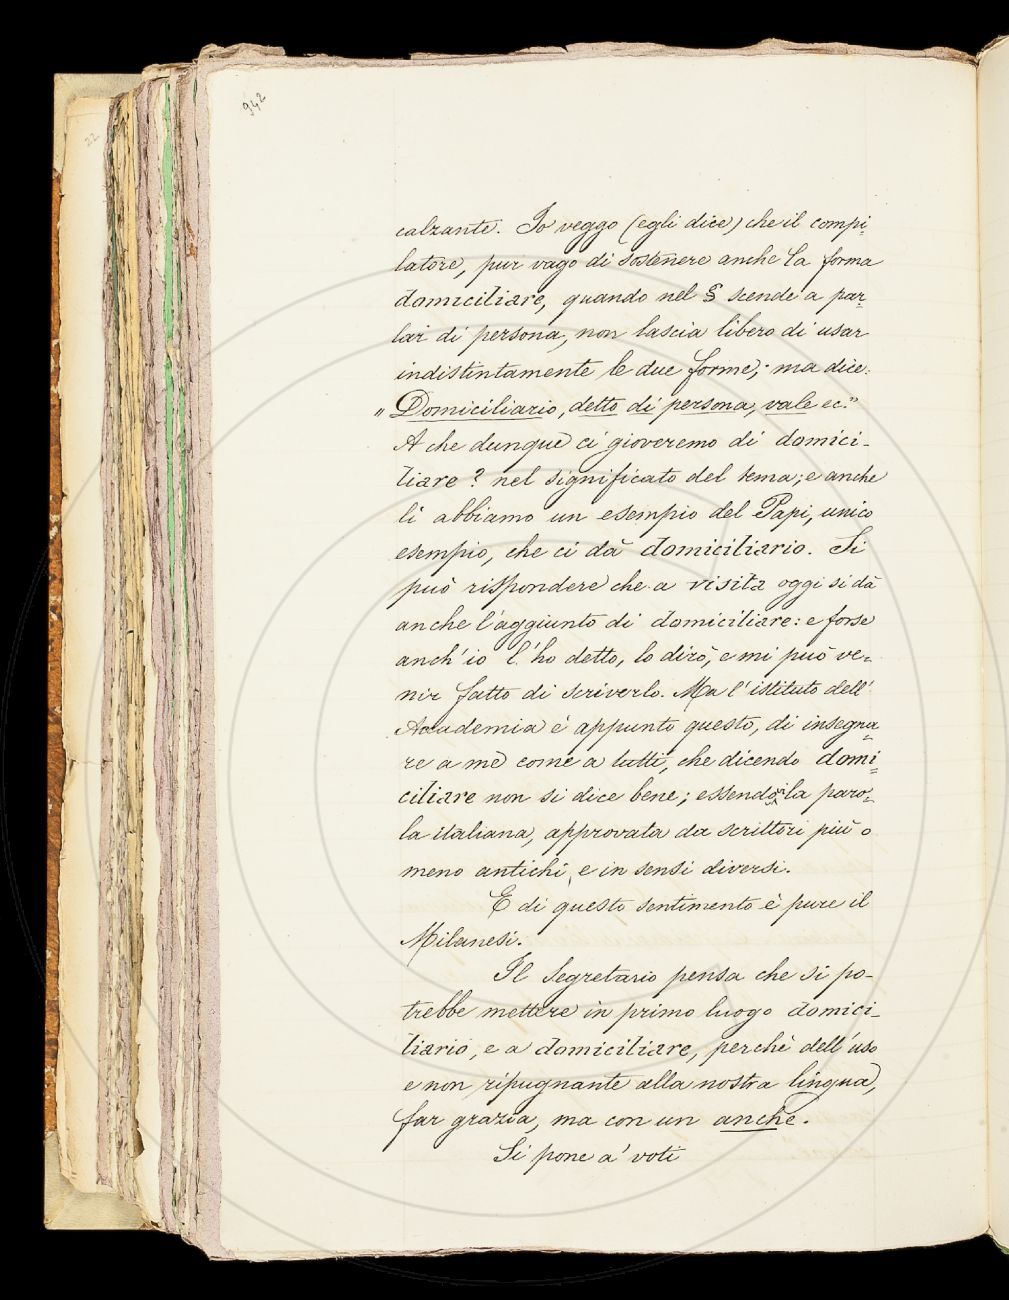 942
22
calzante. Io veggo (egli dice) che il compi-
latore, pur vago di sostenere anche la forma
domiciliare, quando nel § scende a par-
lar di persona, non lascia libero di usar
indistintamente le due forme; ma dice:
„Domiciliario, detto di persona, vale ec."
A che dunque ci gioveremo di domici-
liare? nel significato del tema; e anche
lì abbiamo un esempio del Papi, unico
esempio, che ci dà domiciliario. Si
può rispondere che a visita oggi si dà
anche l'aggiunto di domiciliare: e forse
anch'io l'ho detto, lo dirò, e mi può ve-
nir fatto di scriverlo. Ma l'istituto dell'
Accademia è appunto questo, di insegna-
re a me come a tutti, che dicendo domi-
ciliare non si dice bene; essendovi la paro-
la italiana, approvata da scrittori più o
meno antichi, e in sensi diversi.
E di questo sentimento è pure il
Milanesi.
Il Segretario pensa che si po-
trebbe mettere in primo luogo domici-
liario, e a domiciliare, perchè dell'uso
e non ripugnante alla nostra lingua,
far grazia, ma con un anche.
Si pone a' voti